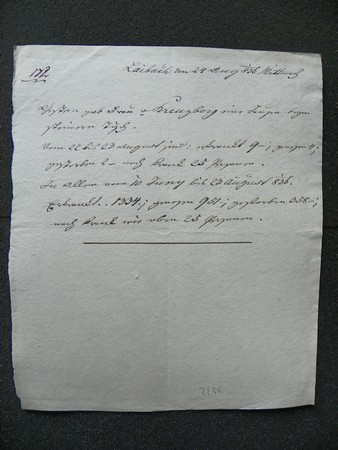 Laibach den 24 Aug 836 Mittwoch
Gestern gab Frau v Kreuzberg eine
Tisch.
Vom 22 bis 23 August sind: erkrankt 9-; genesen 4;
gestorben 2- noch krank 25 Personen.
In allen vom 10 Juny bis 23 August 836.
Erkrankt. 1334; genesen 951; gestorben 358-;
noch krank wie oben 25 Personen.